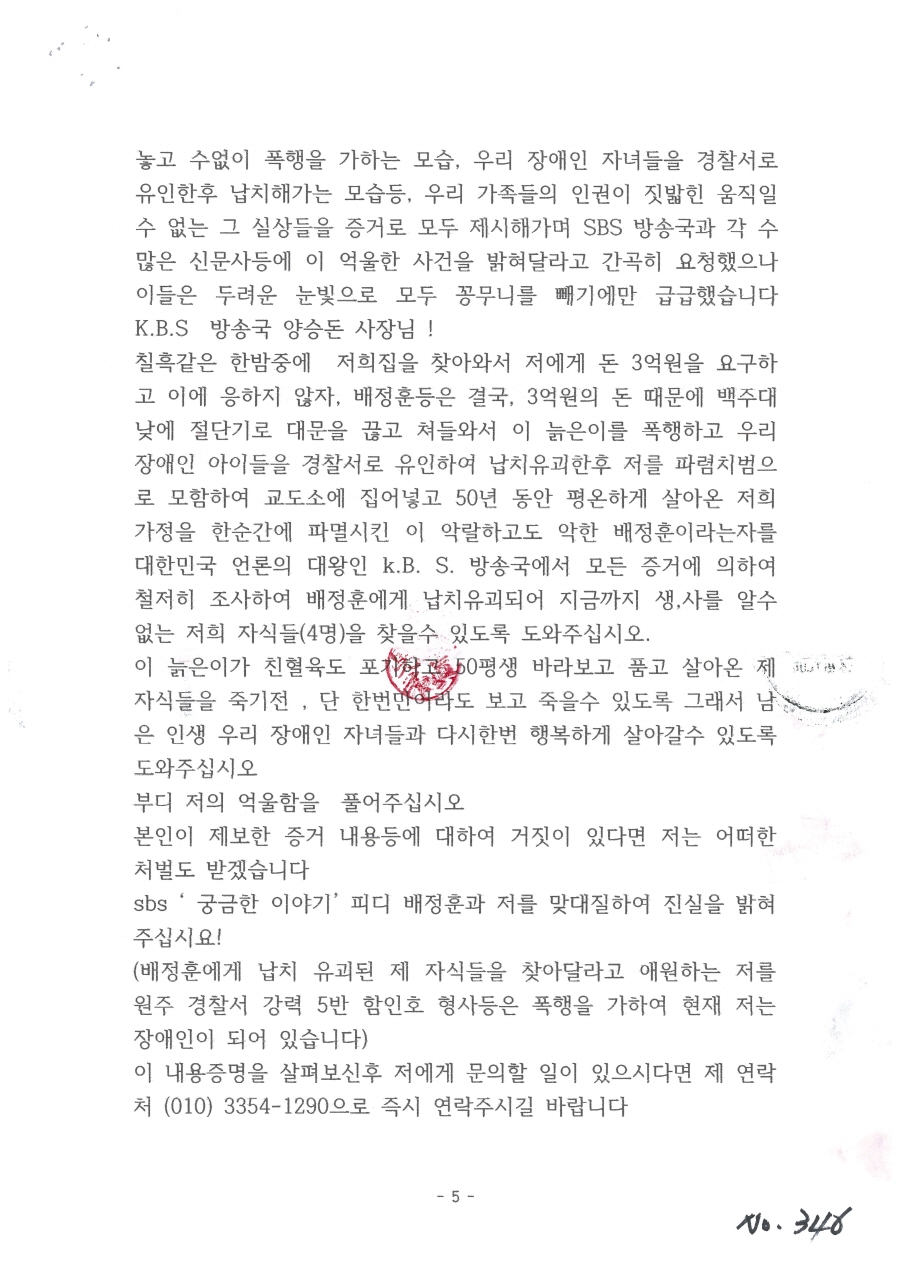 놓고 수없이 폭행을 가하는 모습, 우리 장애인 자녀들을 경찰서로
유인한후 납치해가는 모습등, 우리 가족들의 인권이 짓밟힌 움직일
수 없는 그 실상들을 증거로 모두 제시해가며 SBS 방송국과 각 수
많은 신문사등에 이 억울한 사건을 밝혀달라고 간곡히 요청했으나
이들은 두려운 눈빛으로 모두 꽁무니를 빼기에만 급급했습니다
K.B.S 방송국 양승돈 사장님 !
칠흑같은 한밤중에 저희집을 찾아와서 저에게 돈 3억원을 요구하
고 이에 응하지 않자, 배정훈등은 결국, 3억원의 돈 때문에 백주대
낮에 절단기로 대문을 끊고 쳐들와서 이 늙은이를 폭행하고 우리
장애인 아이들을 경찰서로 유인하여 납치유괴한후 저를 파렴치범으
로 모함하여 교도소에 집어넣고 50년 동안 평온하게 살아온 저희
가정을 한순간에 파멸시킨 이 악랄하고도 악한 배정훈이라는자를
대한민국 언론의 대왕인 k.B. S. 방송국에서 모든 증거에 의하여
철저히 조사하여 배정훈에게 납치유괴되어 지금까지 생,사를 알수
없는 저희 자식들(4명)을 찾을수 있도록 도와주십시오.
이 늙은이가 친혈육도 포기하고 50평생 바라보고 품고 살아온 제
자식들을 죽기전 , 단 한번만이라도 보고 죽을수 있도록 그래서 남
은 인생 우리 장애인 자녀들과 다시한번 행복하게 살아갈수 있도록
도와주십시오
부디 저의 억울함을 풀어주십시오
본인이 제보한 증거 내용등에 대하여 거짓이 있다면 저는 어떠한
처벌도 받겠습니다
sbs ‘ 궁금한 이야기’ 피디 배정훈과 저를 맞대질하여 진실을 밝혀
주십시요!
(배정훈에게 납치 유괴된 제 자식들을 찾아달라고 애원하는 저를
원주 경찰서 강력 5반 함인호 형사등은 폭행을 가하여 현재 저는
장애인이 되어 있습니다)
이 내용증명을 살펴보신후 저에게 문의할 일이 있으시다면 제 연락
처 (010) 3354-1290으로 즉시 연락주시길 바랍니다
- 5 -
No. 346